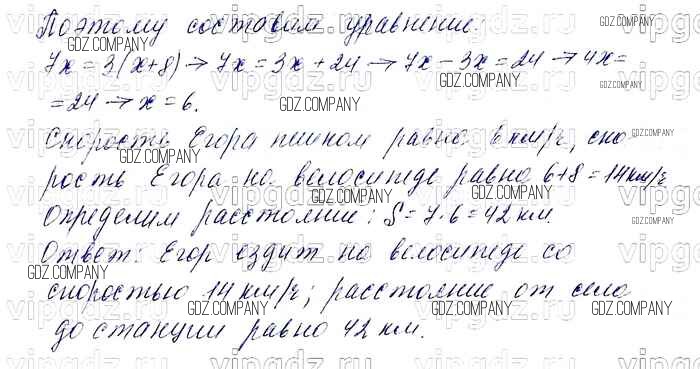 Поэтому составим уравнение:
7x = 3(x+8) → 7x = 3x + 24 → 7x − 3x = 24 → 4x =
= 24 → x = 6.
Скорость Егора пешком равна 6 км/ч, ско-
рость Егора на велосипеде равно 6+8 = 14 км/ч
Определим расстояние: S = 7·6 = 42 км.
Ответ: Егор ездит на велосипеде со
скоростью 14 км/ч; расстояние от села
до станции равно 42 км.